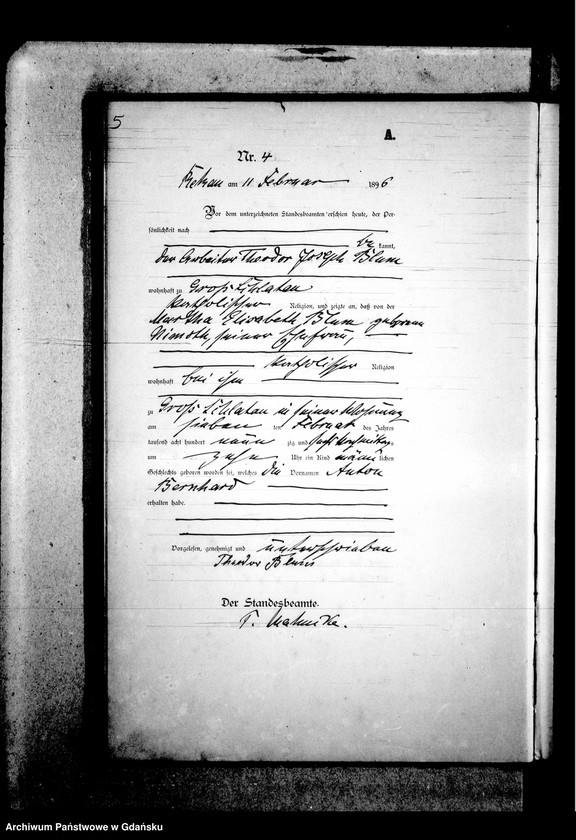 5
A.
Nr. 4
Rekau am 11 Februar 1896
Vor dem unterzeichneten Standesbeamten erschien heute, der Per-
sönlichkeit nach
be kannt,
der Arbeiter Theodor Joseph Blum
wohnhaft zu Groß Schlatau
katholischer Religion, und zeigte an, daß von der
Martha Elisabeth Blum geborene
seiner Ehefrau,
katholischer Religion
wohnhaft bei ihm
zu Groß Schlatau in seiner Wohnung
am sieben ten Februar des Jahres
tausend acht hundert neun zig und sechs Vormittags
um zehn Uhr ein Kind männ lichen
Geschlechts geboren worden sei, welches die Vornamen Anton
Bernhard
erhalten habe.
Vorgelesen, genehmigt und unterschrieben
Theodor Blum
Der Standesbeamte.
Archiwum Państwowe w Gdańsku